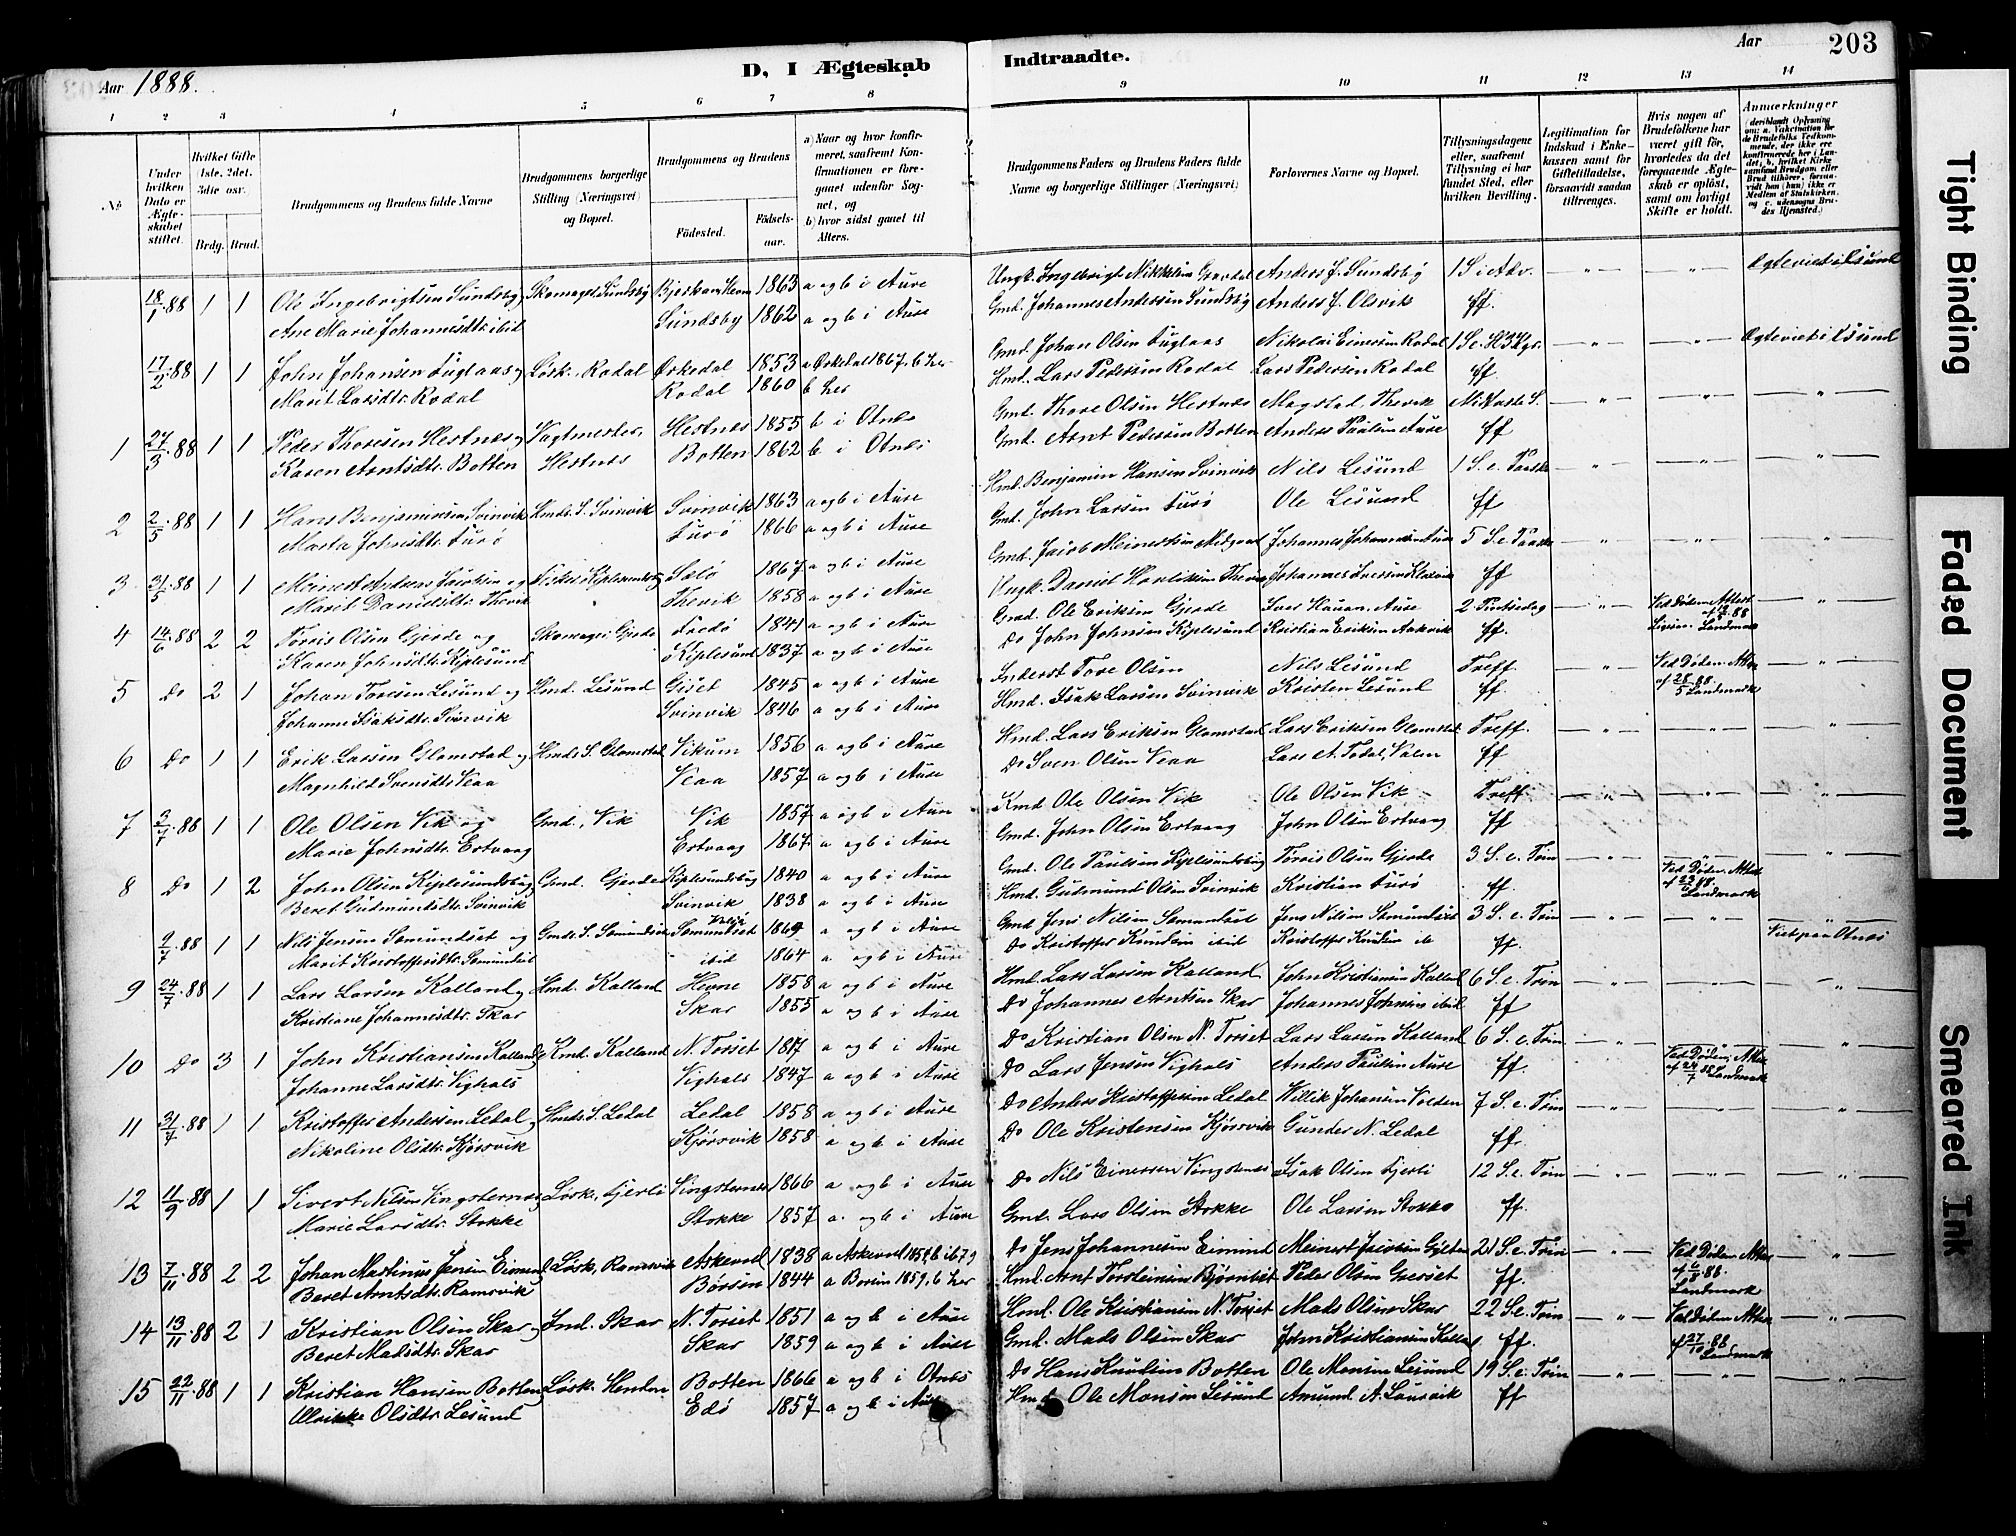 Aar 1888.
D, I Ægteskab Indtraadte.
Aar
203
1 2 3 4 5 6 7 8 9 10 11 12 13 14
No
Under hvilken Dato er Ægteskabet stiftet.
Hvilket Gifte (1ste, 2det, 3die osv.
Brdg. Brud.
Brudgommens og Brudens fulde Navne
Brudgommens borgerlige Stilling (Næringsvei) og Bopæl.
Brudgommens og Brudens
Fødested. Fødselsaar.
a) Naar og hvor konfirmeret, saafremt Konfirmationen er foregaaet udenfor Sognet, og
b) hvor sidst gaaet til Alters.
Brudgommens Faders og Brudens Faders fulde Navne og borgerlige Stillinger (Næringsvei)
Forlovernes Navne og Bopæl.
Tillysningsdagene eller, saafremt Tillysning ei har fundet Sted, efter hvilken Bevilling.
Legitimation for Indskud i Enkekassen samt for Giftetilladelse, forsaavidt saadan tiltrænges.
Hvis nogen af Brudefolkene har været gift før, hvorledes da det foregaaende Ægteskab er opløst, samt om lovligt Skifte er holdt.
Anmærkninger
18/1 88 1 1 Ole Ingebrigtsen Sundsby Skomager, Sundsby 1863 a og b i Aure Anders J. Sundsby 1 S. i Adv.
Ane Marie Johannesdtr. ibid Sundsby 1862 a og b i Aure Gmd. Johannes Andersen Sundsby Anders J. Olsvik ff.
17/2 88 1 1 John Johansen Fuglaas og Løsk., Rodal Ørkedal 1853 a Ørkedal 1867, b her Gmd. Johan Olsen Fuglaas Nikolai Einersen Rodal
Marit Larsdtr. Rodal Rodal 1860 b her Hmd. Lars Pedersen Rodal Lars Pedersen Rodal ff
1 27/3 88 1 1 Peder Thoresen Hestnes og Vagtmester, Hestnes 1855 b i Otnes Gmd. Thore Olsen Hestnes
Karen Arntsdtr. Botten Hestnes Botten 1862 b i Otnes Gmd. Arnt Pedersen Botten Anders Paulsen Aure ff
2 2/5 88 1 1 Hans Benjaminsen Svinvik Hmds. S. Svinvik Svinvik 1863 a og b i Aure Hmd. Benjamin Hansen Svinvik Nils Lesund 1 S. e. Paaske
Marta Johnsdtr. Furø Furø 1866 a og b i Aure Gmd. John Larsen Furø Ole Lesund ff
3 31/5 88 1 1 Jacobsen og 1867 a og b i Aure 5 S. e. Paaske
Marit Danielsdtr. Thevik Thevik 1858 a og b i Aure ff
4 14/6 88 2 2 Torris Olsen Gjerde og Skomager Gjerde Fredø 1841 a og b i Aure Gmd. Ole Eriksen Gjerde 2 Pintsedag
Karen Johnsdtr. Kiplesund Kiplesund 1837 a og b i Aure Do John Johnsen Kiplesund Kristian Eriksen Aakvik ff.
5 Do 2 1 Johan Toresen Lesund og Hmd. Lesund Giset 1845 a og b i Aure Inderst Tore Olsen Nils Lesund Treff.
Johanne Isaksdtr. Svinvik Svinvik 1846 a og b i Aure Hmd. Isak Larsen Svinvik Kristen Lesund ff.
6 Do 1 1 Erik Larsen Glamstad og Hmds. S. Glamstad Vikum 1856 a og b i Aure Hmd. Lars Eriksen Glamstad Lars Eriksen Glamstad Treff.
Magnhild Svensdtr. Veaa Veaa 1857 a og b i Aure Do Sven Olsen Veaa ff
7 3/7 88 1 1 Ole Olsen Vik og Gmd., Vik Vik 1857 a og b i Aure Hmd Ole Olsen Vik Ole Olsen Vik Treff.
Marie Johnsdtr. Ertvaag Ertvaag 1867 a og b i Aure Gmd. John Olsen Ertvaag John Olsen Ertvaag ff
8 Do 1 2 John Olsen Kiplesundsbug Gmd. Gjerde Kiplesundsbug 1840 a og b i Aure Gmd. Ole Paulsen Kiplesundsbug Torris Olsen Gjerde 3 S. e. Trin
Beret Gudmundsdtr. Svinvik Svinvik 1838 a og b i Aure Hmd. Gudmund Olsen Svinvik Kristian Furø ff.
2/7 88 1 1 Nils Jensen Somundset og Gmds. S. Somundset Somundset 1864 a og b i Aure Gmd Jens Nilsen Somundset Jens Nilsen Somundset 3 S. e. Trin Viet paa Otnes
Marit Kristoffersdtr. Somundset ibid 1864 a og b i Aure Do Kristoffer Knudsen ibid Kristoffer Knudsen ib ff.
9 24/7 88 1 1 Lars Larsen Kalland og Hmd. Kalland Hevne 1858 a og b i Aure Hmd. Lars Larsen Kalland John Kristiansen Kalland 6 S. e. Trin
Kristiane Johannesdtr. Skar Skar 1855 a og b i Aure Do Johannes Arntsen Skar Johannes Johnsen ibid ff
10 Do 3 1 John Kristiansen Kalland Hmd. Kalland N. Torset a og b i Aure Do Kristian Olsen N. Torset Lars Larsen Kalland 6 S. e. Trin
Johanne Larsdtr. Vighals Vighals 1847 a og b i Aure Do Lars Jensen Vighals Anders Paulsen Aure ff.
11 31/7 88 1 1 Kristoffer Andersen Ledal Hmds. S. Ledal Ledal 1858 a og b i Aure Do Anders Kristoffersen Ledal Willik Johansen Volden 7 S. e. Trin
Nikoline Olsdtr. Kjørsvik Kjørsvik 1858 a og b i Aure Do Ole Kristensen Kjørsvik Gunder N. Ledal ff.
12 11/9 88 1 1 Sivert Nilsen Vingsternes Løsk., Vingsternes 1866 a og b i Aure Do Nils Einersen Vingsternes Isak Olsen 12 S. e. Trin
Marie Larsdtr. Stokke Stokke 1857 a og b i Aure Gmd. Lars Olsen Stokke Ole Larsen Stokke ff.
13 7/11 88 2 2 Johan Martinus Jensen Løsk, Ramsvik Askevold 1838 Do Jens Johannesen 21 S. e. Trin
Beret Arntsdtr. Ramsvik Børsen 1844 a Børsen 1859, b her Hmd. Arnt Torsteinsen Peder Olsen ff.
14 13/11 88 2 1 Kristian Olsen Skar Ind. Skar N. Torset 1851 a og b i Aure Hmd. Ole Kristiansen N. Torset Mads Olsen Skar 22 S. e. Trin
Beret Madsdtr. Skar Skar 1859 a og b i Aure Gmd. Mads Olsen Skar John Kristiansen Kalland ff.
15 22/11 88 1 1 Kristian Hansen Botten Løsk. Henden Botten 1866 a og b i Otnes Do Hans Knudsen Botten Ole Monsen Lesund 19 S. e. Trin
Ulrikke Olsdtr. Lesund Edø 1857 a og b i Aure Hmd. Ole Monsen Lesund Amund A. Laurvik ff
Tight Binding
Faded Document
Smeared Ink